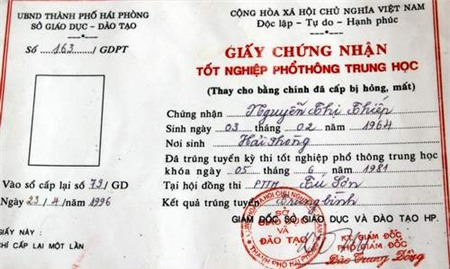 UBND THÀNH PHỐ HẢI PHÒNG
SỞ GIÁO DỤC - ĐÀO TẠO
Số 163 / GDPT
CỘNG HÒA XÃ HỘI CHỦ NGHĨA VIỆT NAM
Độc lập - Tự do - Hạnh phúc
GIẤY CHỨNG NHẬN
TỐT NGHIỆP PHỔ THÔNG TRUNG HỌC
(Thay cho bằng chính đã cấp bị hỏng, mất)
Chứng nhận Nguyễn Thị Thiếp
Sinh ngày 03 tháng 02 năm 1964
Nơi sinh Hải Phòng
Đã trúng tuyển kỳ thi tốt nghiệp phổ thông trung học
khóa ngày 05 tháng 6 năm 1981
Tại hội đồng thi PTTH Sơn
Kết quả trúng tuyển Trung bình
Vào sổ cấp lại số 79 / GD
Ngày 23 / 4 / 1996
GIẤY NÀY :
CHỈ CẤP LẠI MỘT LẦN
GIÁM ĐỐC SỞ GIÁO DỤC VÀ ĐÀO TẠO HP.
KT. GIÁM ĐỐC
PHÓ GIÁM ĐỐC
Đào Trung Đồng
SỞ
GIÁO DỤC
VÀ ĐÀO TẠO
THÀNH PHỐ HẢI PHÒNG